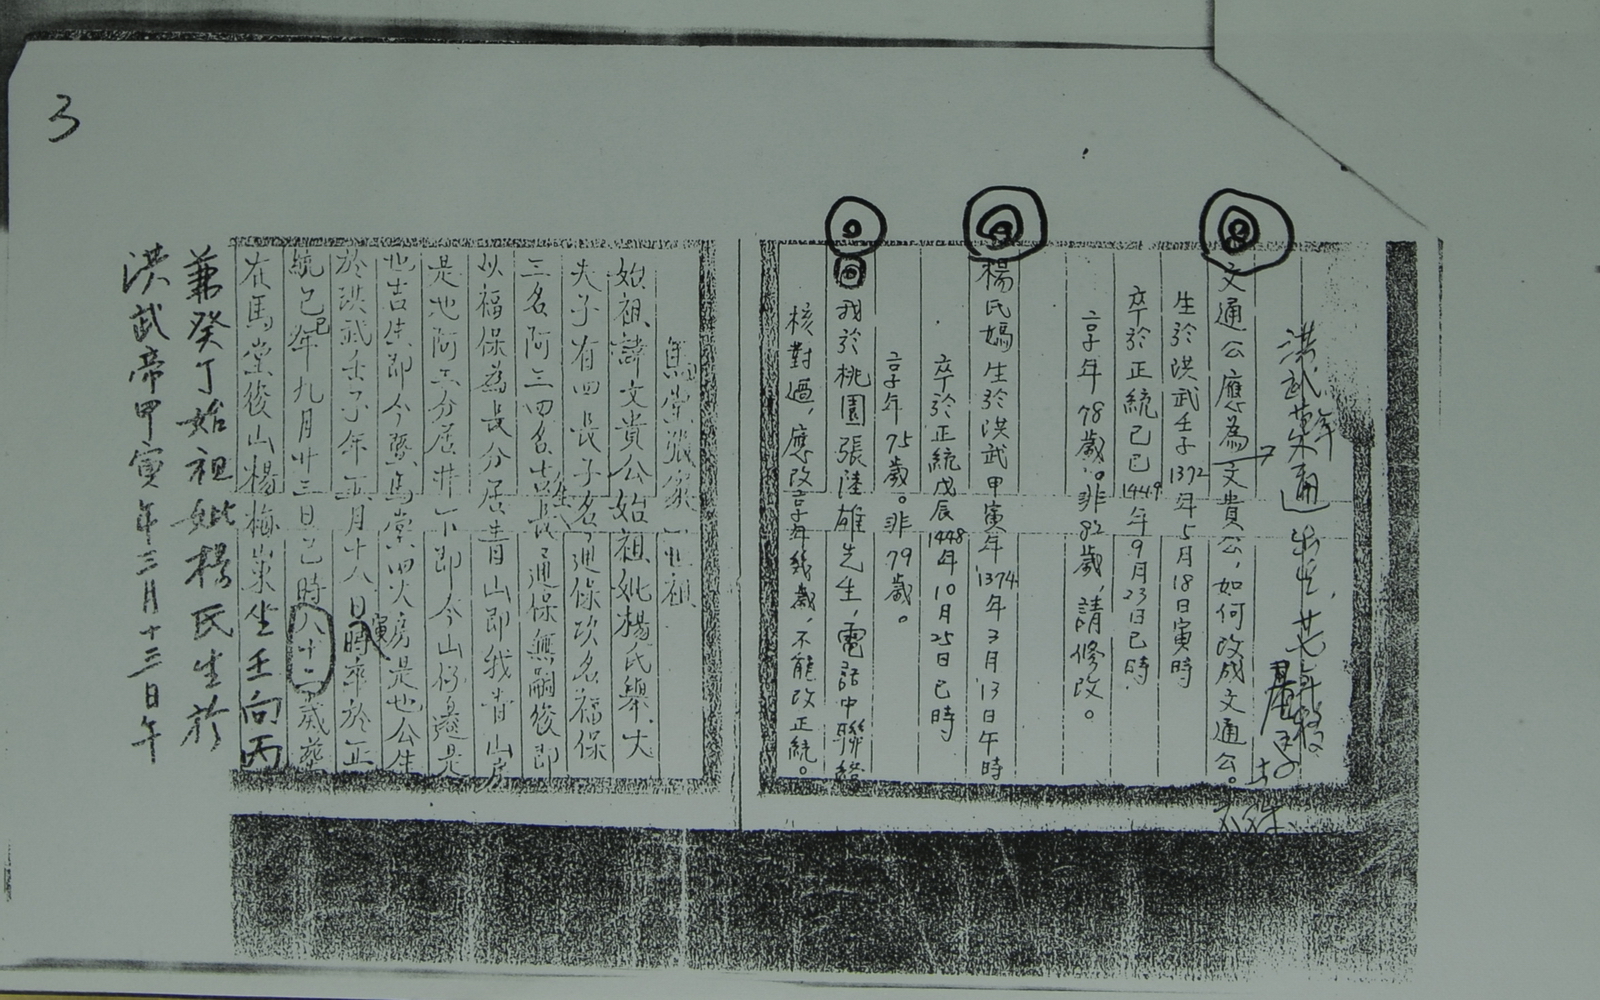 3
洪武
文通公應為文貴公，如何改成文通公。
生於洪武壬子1372年5月18日寅時
卒於正統己巳1449年9月23日巳時
享年78歲。非82歲，請修改。
楊氏媽生於洪武甲寅年1374年3月13日午時
卒於正統戊辰1448年10月25日巳時
享年75歲。非79歲。
我於桃園張陸雄先生，電話中聯絡
核對過，應改享年幾歲，不能改正統。
馬堂張家一世祖
始祖諱文貴公始祖妣楊氏舉大
夫子有四長子名通保次名福保
三名阿三四名長通保無嗣後即
以福保為長分居青山即我青山房
是也阿三分居井下即今山仔邊是
也吉生即今馬堂四大房是也公生
於洪武壬子年五月十八日寅時卒於正
統己巳年九月廿三日巳時八十二歲葬
在馬堂後山楊梅坐壬向丙
兼癸丁始祖妣楊氏生於
洪武帝甲寅年三月十三日午